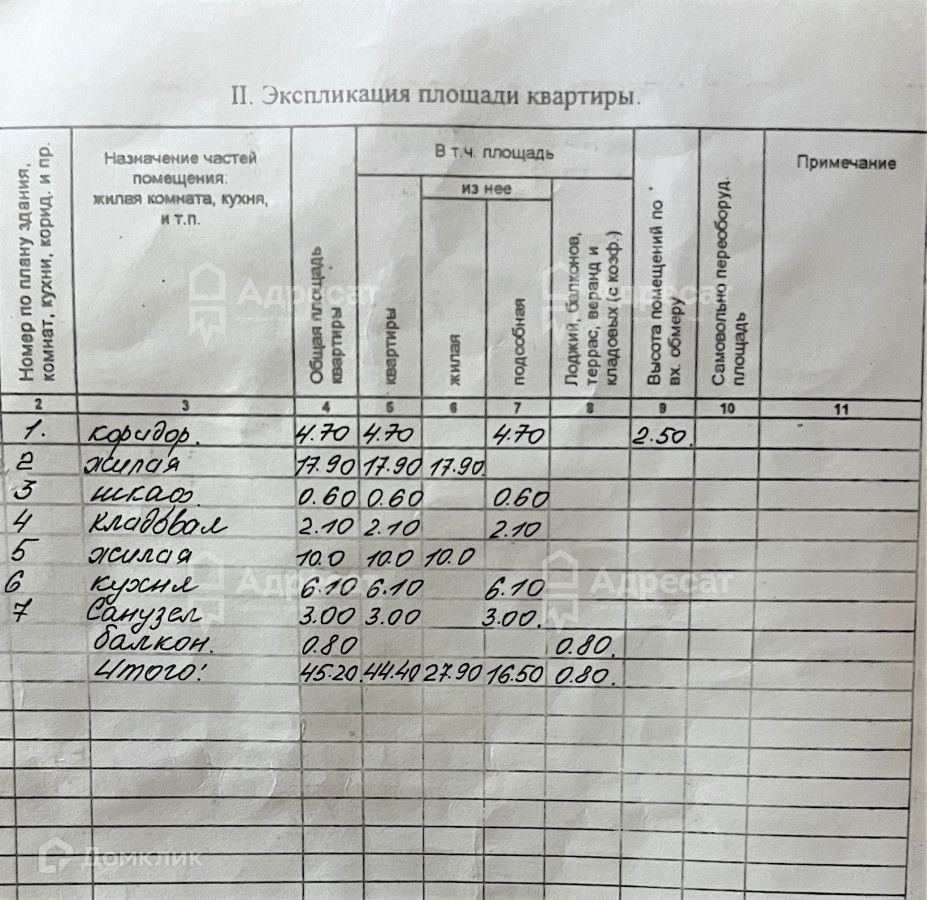 II. Экспликация площади квартиры.
Номер по плану здания, комнат, кухни, корид. и пр.
Назначение частей
помещения:
жилая комната, кухня,
и т.п.
Общая площадь
квартиры
В т.ч. площадь
квартиры
из нее
жилая
подсобная
Лоджий, балконов,
террас, веранд и
кладовых (с коэф.)
Высота помещений по
вх. обмеру
Самовольно переоборуд.
площадь
Примечание
2 3 4 5 6 7 8 9 10 11
1. коридор. 4.70 4.70 4.70 2.50.
2 жилая 17.90 17.90 17.90.
3 шкаф. 0.60 0.60 0.60
4 кладовая 2.10 2.10 2.10
5 жилая 10.0 10.0 10.0
6 кухня 6.10 6.10 6.10
7 Санузел 3.00 3.00 3.00.
балкон. 0.80 0.80.
Итого: 45.20 44.40 27.90 16.50 0.80.
Адресат
Адресат
Адресат
Адресат
Домклик